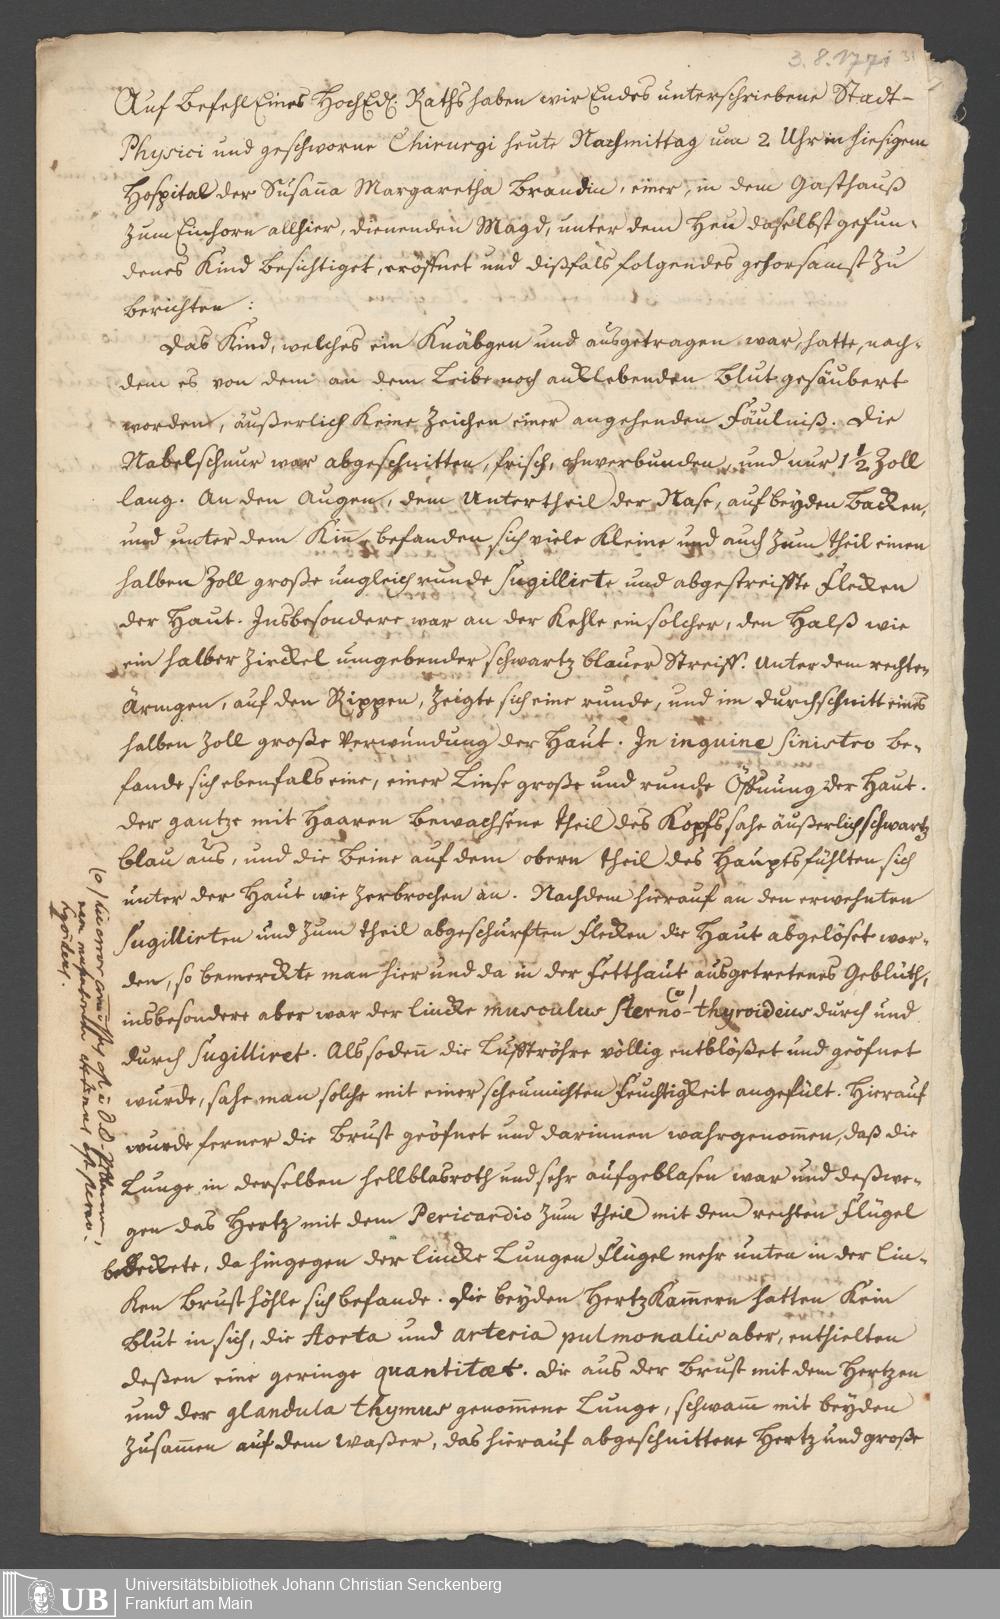 3. 8. 1771
31
Auf Befehl Eines HochEdl: Raths haben wir Endes unterschriebene Stadt-
Physici und geschworne Chirurgi heute Nachmittag um 2 Uhr in hiesigem
Hospital der Susanna Margaretha Brandin, einer, in dem Gasthauß
zum Einhorn allhier, dienenden Magd, unter dem Heu daselbst gefun-
denes Kind besichtiget, eröffnet und dißfals folgendes gehorsamst zu
berichten:
Das Kind, welches ein Knäbgen und ausgetragen war, hatte, nach-
dem es von dem an dem Leibe noch anklebenden Blut gesäubert
worden, äußerlich keine Zeichen einer angehenden Fäulniß. Die
Nabelschnur war abgeschnitten, frisch, ohnverbunden, und nur 1 1/2 Zoll
lang. An den Augen, dem Untertheil der Nase, auf beyden Backen,
und unter dem Kin befanden sich viele kleine und auch zum theil einen
halben Zoll große ungleich runde sugillirte und abgestreiffte Flecken
der Haut. Insbesondere war an der Kehle ein solcher, den Halß wie
ein halber Zirckel umgebender schwartz blauer Streiff. Unter dem rechten
Ärmgen, auf den Rippen, zeigte sich eine runde, und im durchschnitt eines
halben Zoll große Verwundung der Haut. In inguine sinistro be-
fande sich ebenfals eine, einer Linse große und runde Öffnung der Haut.
Der gantze mit Haaren bewachsene theil des Kopfs sahe äußerlich schwartz
blau aus, und die Beine auf dem obern theil des Haupts fühlten sich
unter der Haut wie zerbrochen an. Nachdem hierauf an den erwehnten
sugillirten und zum theil abgeschürften Flecken die Haut abgelöset wor-
den, so bemerckte man hier und da in der Fetthaut ausgetretenes Geblüth,
insbesondere aber war der lincke musculus sterno-(o) thyroideus durch und
durch sugilliret. Als sodenn die Lufftröhre völlig entblößet und geöfnet
wurde, sahe man solche mit einer scheumichten Feuchtigkeit angefült. Hierauf
wurde ferner die Brust geöfnet und darinnen wahrgenommen, daß die
Lunge in derselben hellblasroth und sehr aufgeblasen war und deßwe-
gen das Hertz mit dem Pericardio zum theil mit dem rechten Flügel
bedeckete, da hingegen der lincke Lungen Flügel mehr unten in der lin-
ken Brusthöhle sich befande. Die beyden Hertzkammern hatten kein
Blut in sich, die Aorta und arteria pulmonalis aber, enthielten
deßen eine geringe quantitæt. Die aus der Brust mit dem Hertzen
und der glandula thymus genommene Lunge, schwamm mit beyden
zusammen auf dem Waßer, das hierauf abgeschnittene Hertz und große
(o) hic error
UB
Universitätsbibliothek Johann Christian Senckenberg
Frankfurt am Main